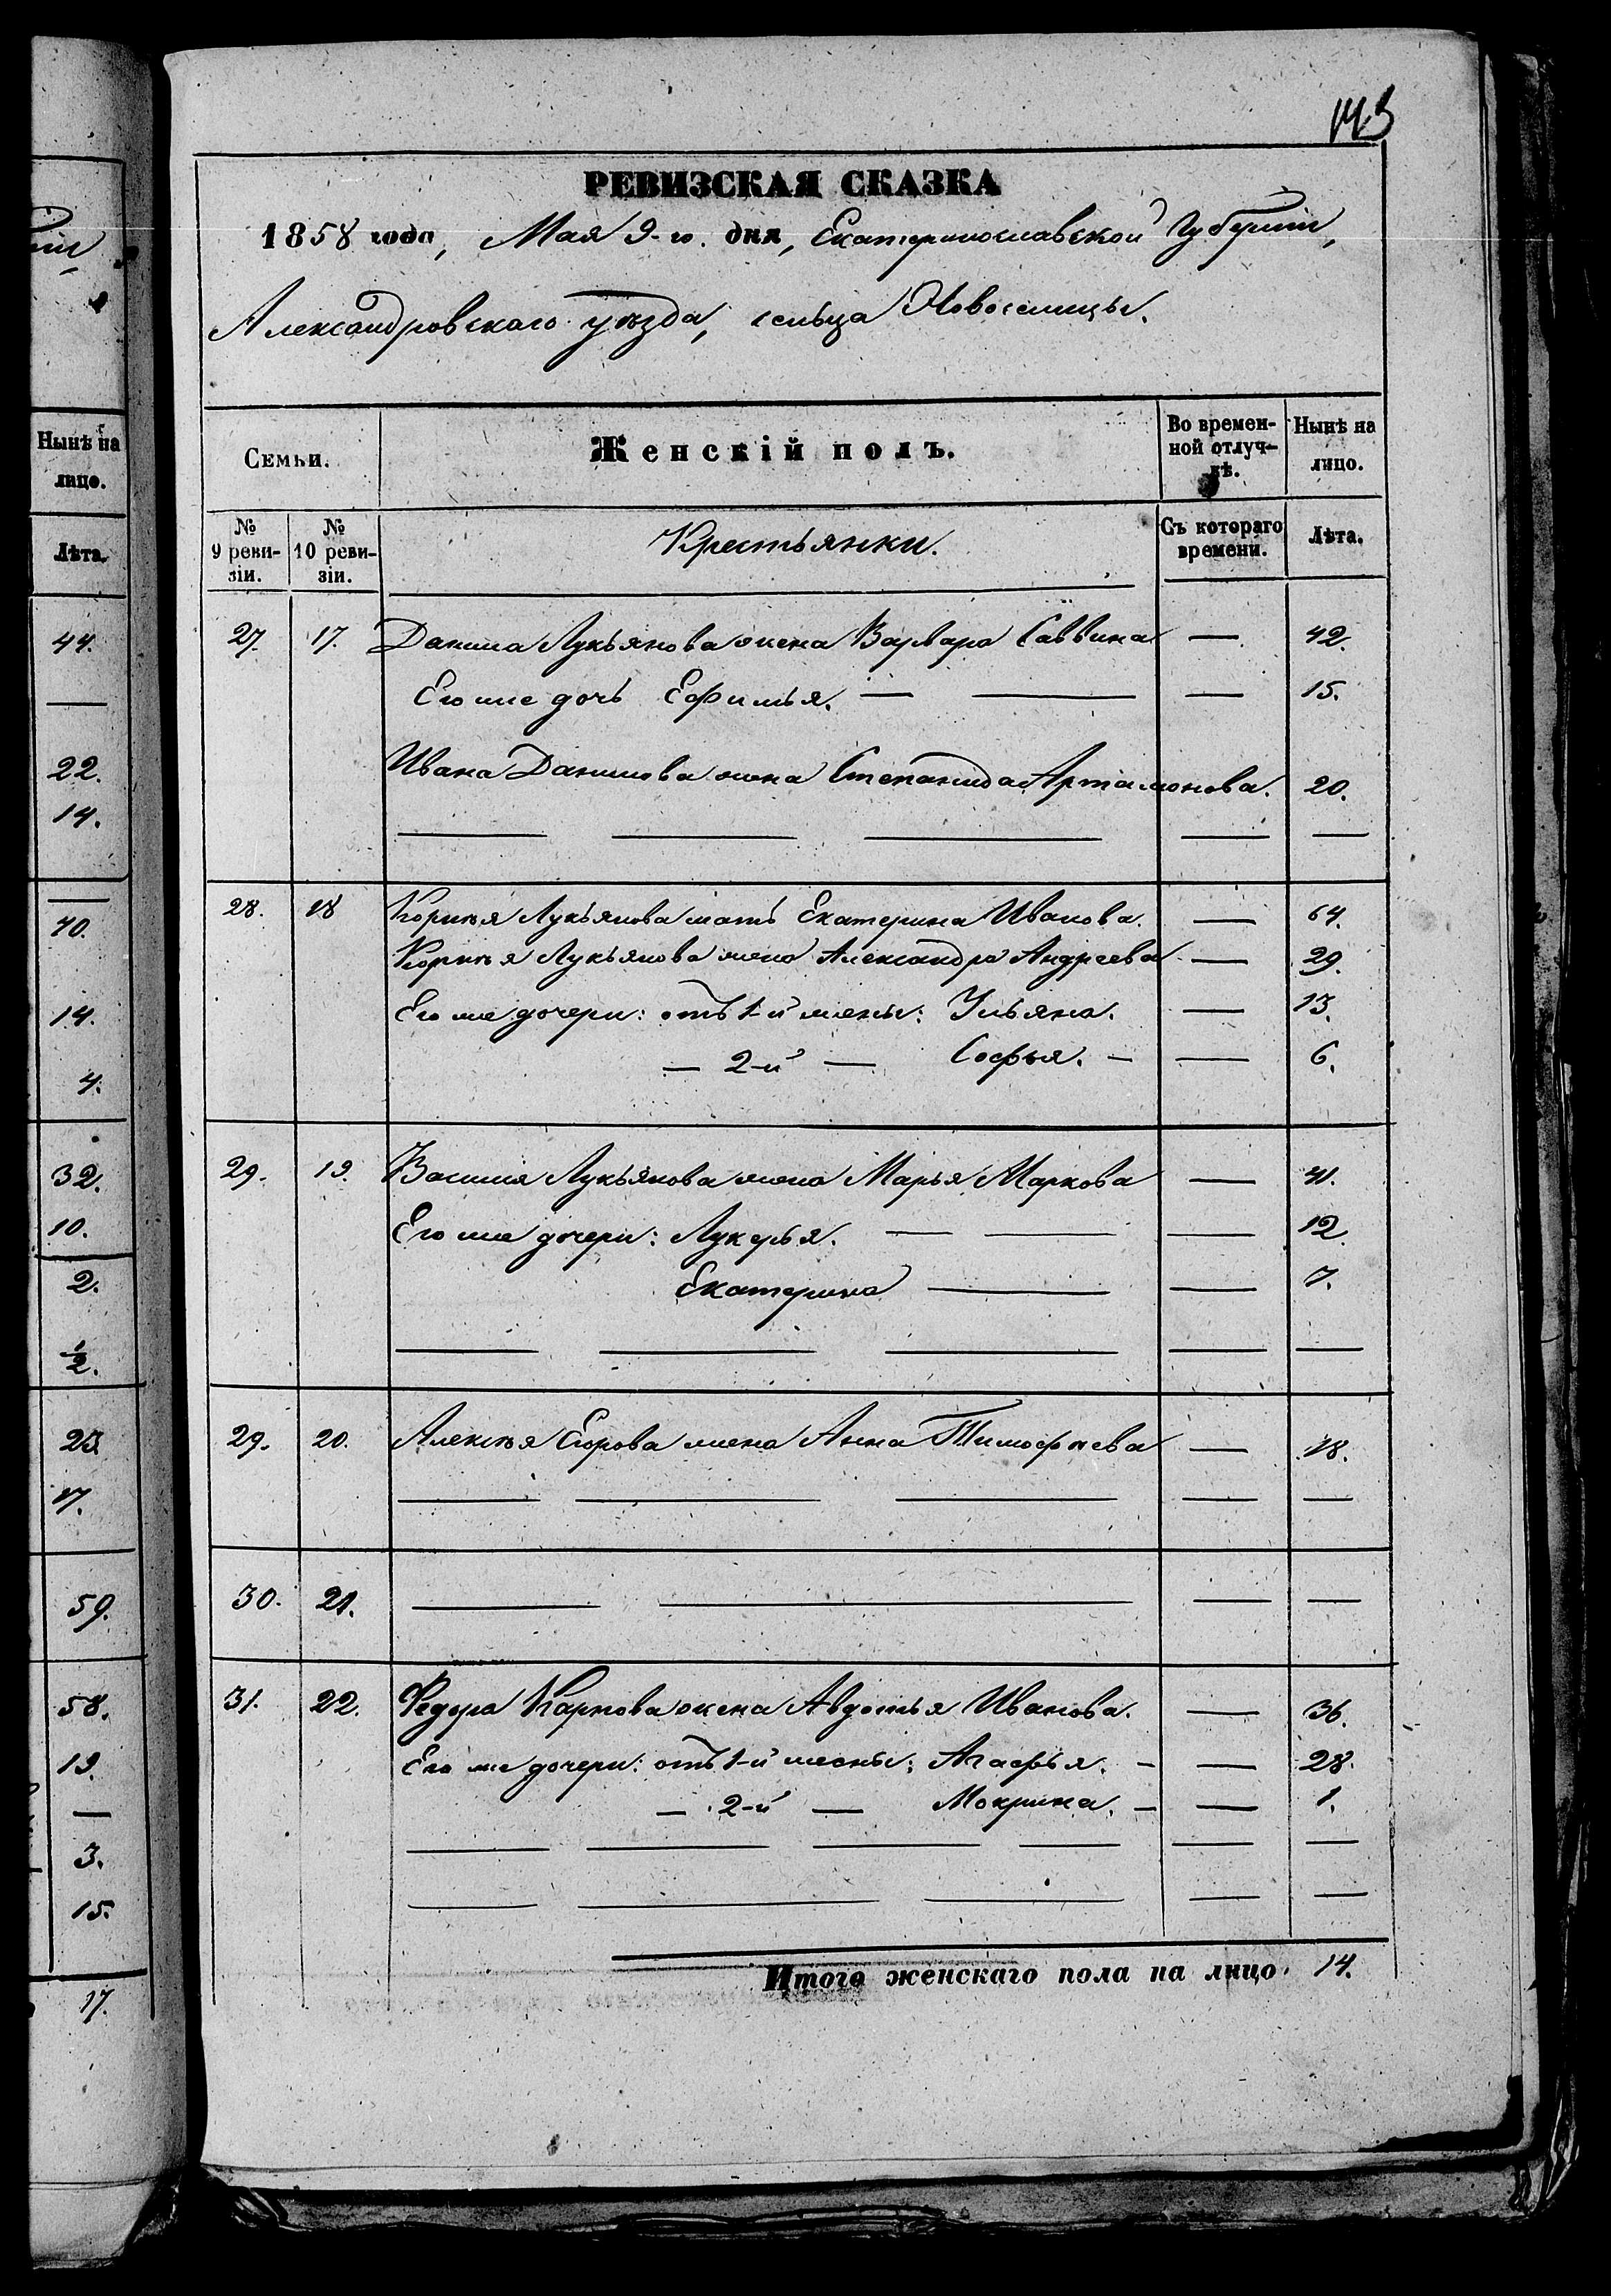 143
РЕВИЗСКАЯ СКАЗКА
1858 года, Мая 9-го. дня, Екатеринославской Губерніи,
Александровскаго уѣзда, сельца Новоселицы.
Семьи.
Женскій полъ.
Во времен-
ной отлуч-
кѣ.
Нынѣ на
лицо.
№
9 реви-
зіи.
№
10 реви-
зіи.
Крестьянки.
Съ котораго
времени.
Лѣта.
27. 17. Данила Лукьянова жена Варвара Саввина — 42.
Его же дочь Ефимья. — — — 15.
Ивана Данилова жена Степанида Артамонова. 20.
28. 18 Корнѣя Лукьянова мать Екатерина Иванова. — 64.
Корнѣя Лукьянова жена Александра Андреева — 29.
Его же дочери: отъ 1-й жены: Ульяна. — 13.
— 2-й — Софья. — — 6.
29. 19. Василія Лукьянова жена Марья Маркова — 41.
Его же дочери: Лукерья. — — — 12.
Екатерина — — 7.
29. 20. Алексѣя Егорова жена Анна Тимофѣева — 18.
30. 21. — — — —
31. 22. Федора Карпова жена Авдотья Иванова. — 36.
Его же дочери: отъ 1-й жены: Агафья. — — 28.
— 2-й — Мокрина. — — 1.
Итого женскаго пола на лицо. 14.
Нынѣ на
лицо.
Лѣта.
44.
—
22.
14.
—
70.
14.
4.
32.
10.
2.
1/2.
17.
59.
58.
19.
—
3.
15.
17.